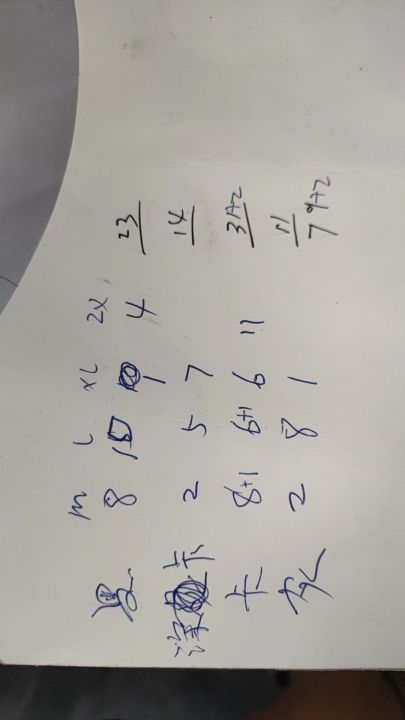 m L XL 2X
黑 8 1 4 23
深卡 2 5 7 14
卡 8+1 6+1 6 11 31+2
灰 2 8 1 11
7 9+2